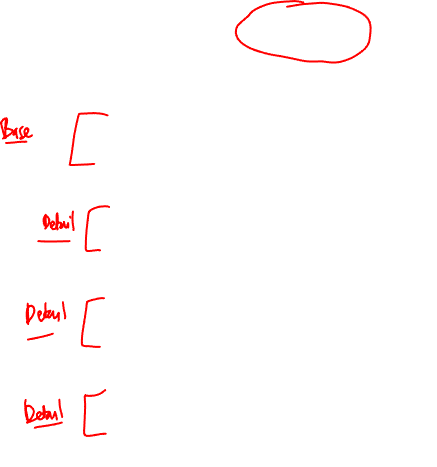 Base
Detail
Detail
Detail